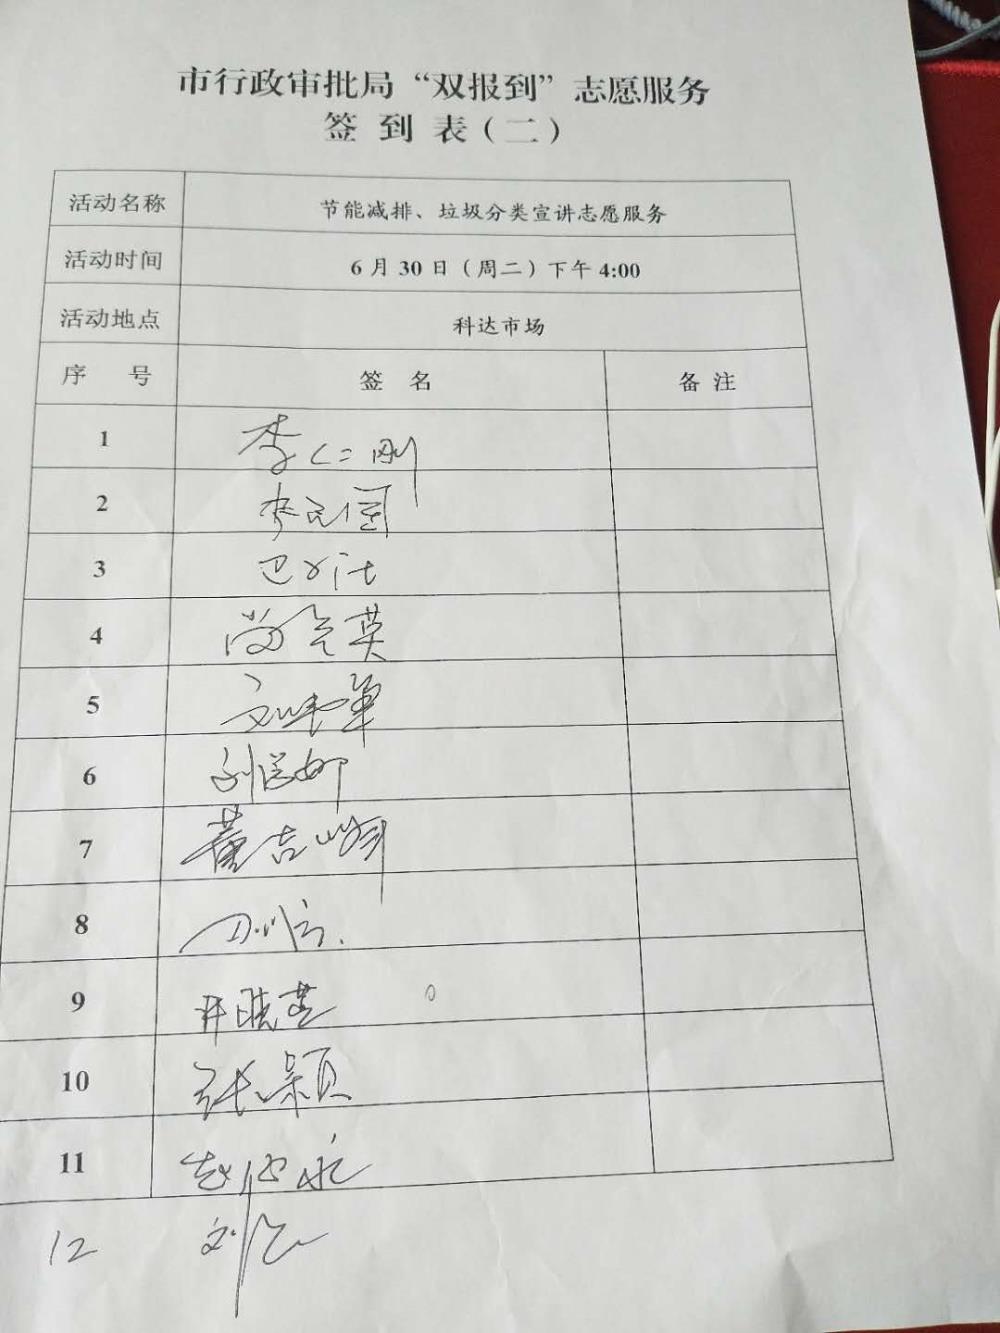 市行政审批局“双报到”志愿服务
签 到 表（二）
活动名称 节能减排、垃圾分类宣讲志愿服务
活动时间 6月30日（周二）下午4:00
活动地点 科达市场
序 号 签 名 备 注
1 李仁刚
2 李民国
3
4 尚
5 刘
6 刘
7 董吉峰
8
9 井晓莲
10 张颖
11 赵
12 刘